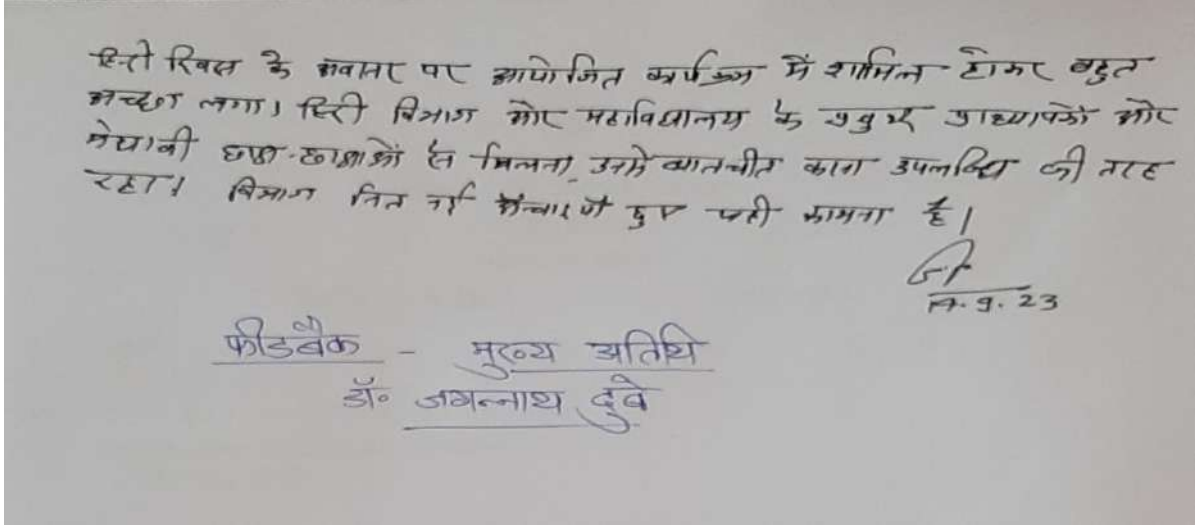 हिन्दी दिवस के अवसर पर आयोजित कार्यक्रम में शामिल होकर बहुत
अच्छा लगा। हिंदी विभाग और महाविद्यालय के प्राध्यापकों और
मेधावी छात्र-छात्राओं से मिलना, उनसे बातचीत करना उपलब्धि की तरह
रहा। विभाग नित नई ऊँचाई छुए यही कामना है।
14.9.23
फीडबैक - मुख्य अतिथि
डॉ॰ जगन्नाथ दुबे